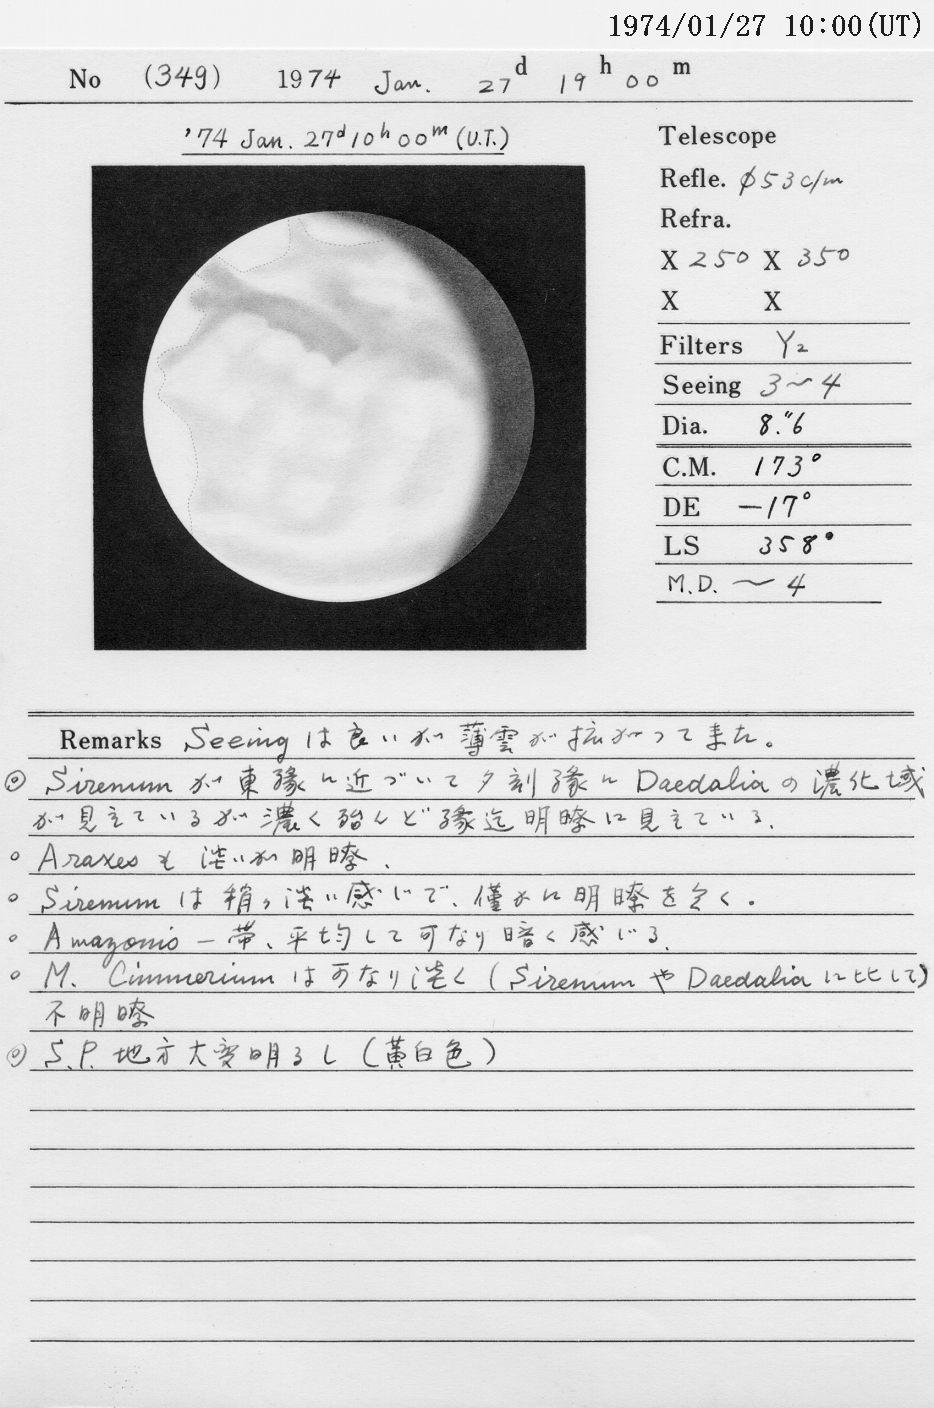 1974/01/27 10:00(UT)
No (349) 1974 Jan. 27d 19h 00m
'74 Jan. 27d 10h 00m (U.T.)
Telescope
Refle. φ53c/m
Refra.
X 250 X 350
X X
Filters Y2
Seeing 3~4
Dia. 8."6
C.M. 173°
DE -17°
LS 358°
M.D. ~4
Remarks Seeingは良いが薄雲が拡がってまた。
◎ Sirenumが東縁に近づいて夕刻縁にDaedaliaの濃化域
が見えているが濃く殆んど縁迄明瞭に見えている.
○ Araxesも淡いが明瞭.
○ Sirenumは稍々淡い感じで、僅かに明瞭を欠く.
○ Amazonis一帯、平均して可なり暗く感じる.
○ M. Cimmeriumは可なり淡く(SirenumやDaedaliaに比して)
不明瞭
◎ S.P.地方大変明るし(黄白色)